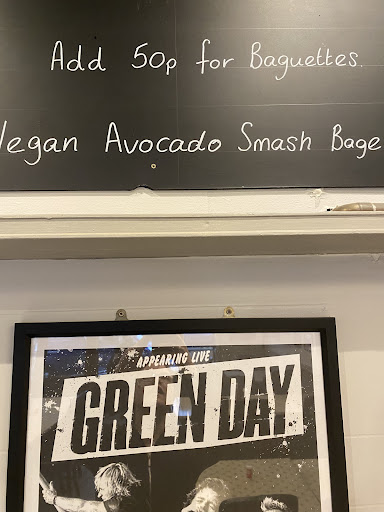 Add 50p for Baguettes.
Vegan Avocado Smash Bage
APPEARING LIVE
GREEN DAY